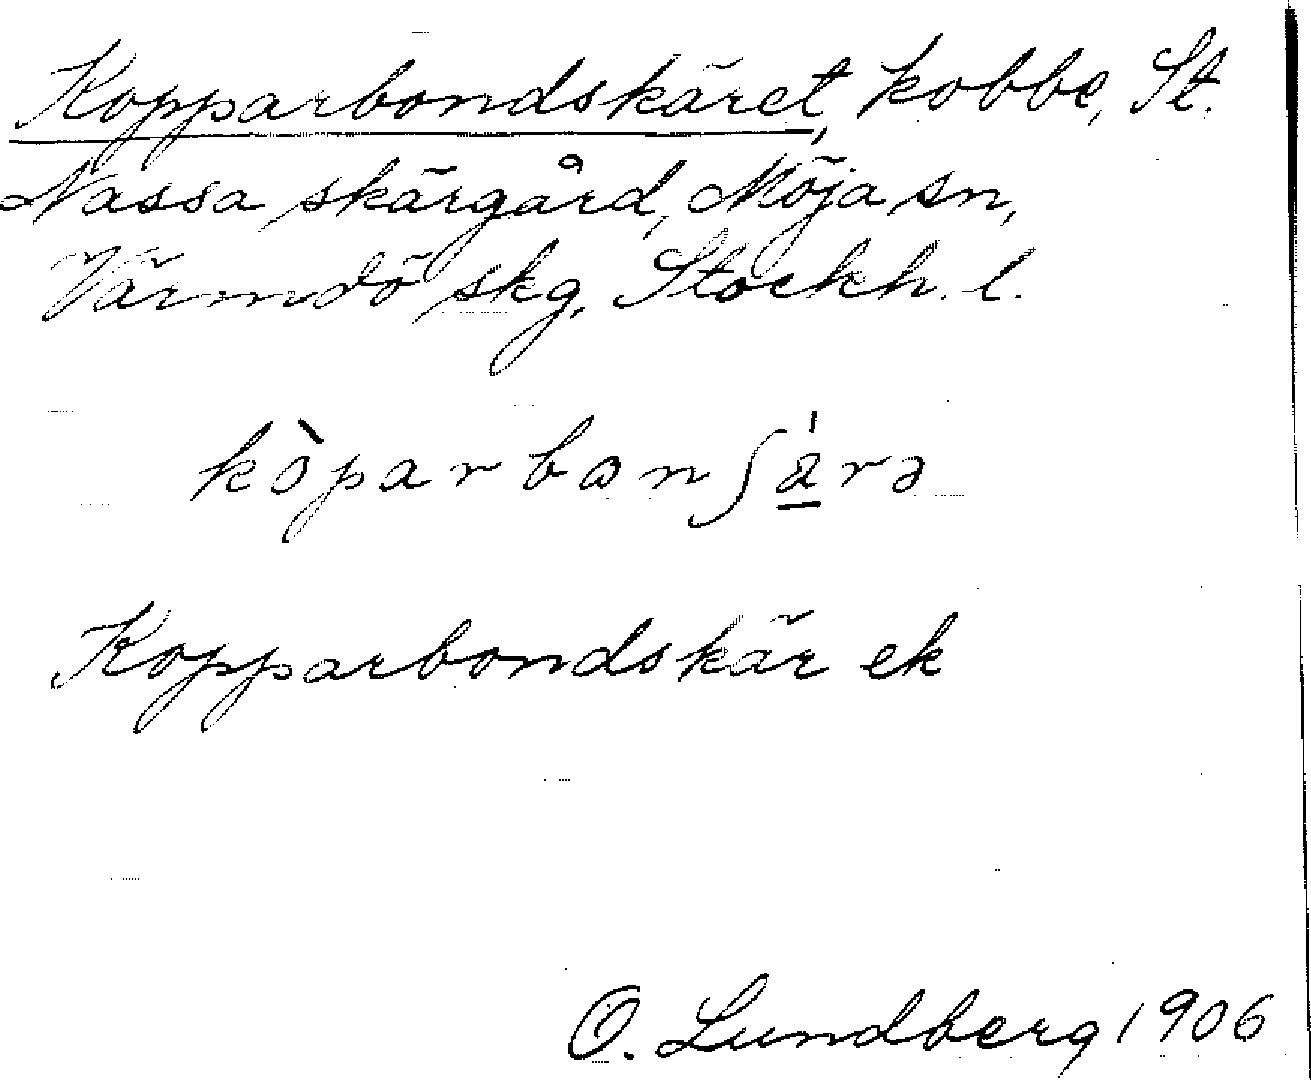 Kopparbondskäret, kobbe, St.
Nassa skärgård, Möja sn,
Värmdö skg, Stockh. l.
kòparbɷnʃá̱rə
Kopparbondskär ek
O. Lundberg 1906